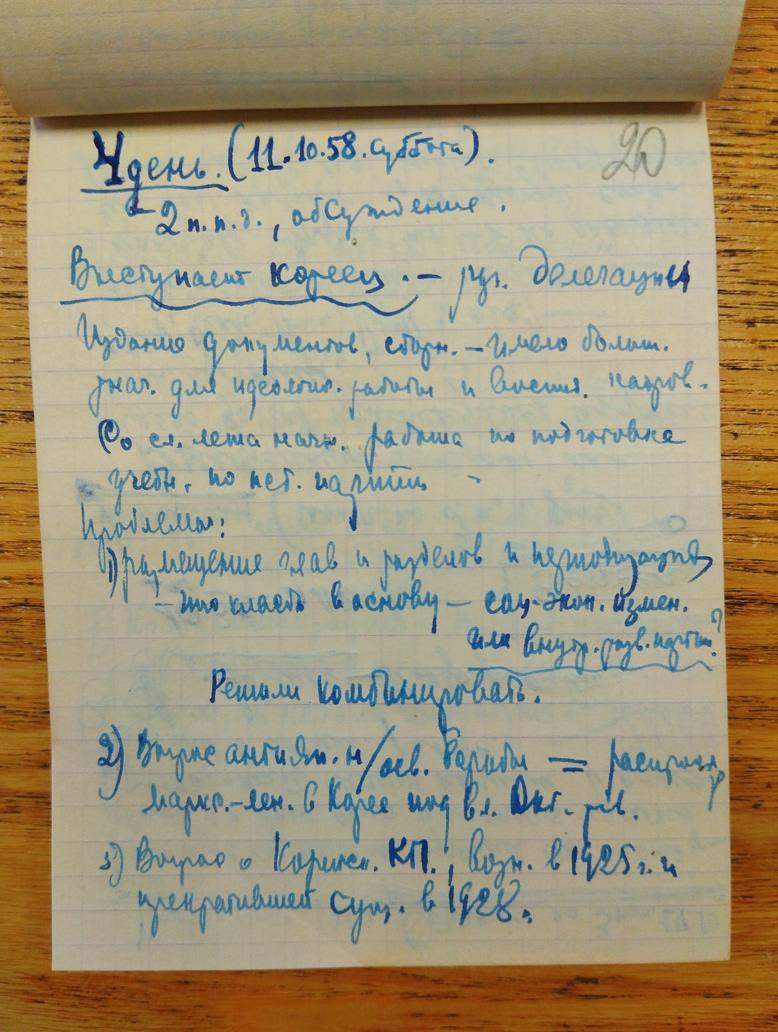 20
4 день. (11.10.58. суббота).
– 2 п.п.д., обсуждение.
Выступает кореец. – рук. делегации
Издание документов, сборн. – имело больш.
знач. для идеологич. работы и воспит. кадров.
Со сл. лета начн. работа по подготовке
учебн. по ист. партии
Проблемы:
1) размещение глав и разделов и периодизация
– что класть в основу – соц-экон. измен.
или внутр. разв. партии?
Решили комбинировать.
2) Вопрос антияп. н/осв. борьбы = распростр
маркс.-лен. в Корее под вл. Окт. рев.
3) Вопрос о Корейск. КП., возн. в 1925 г. и
прекратившей сущ. в 1928.